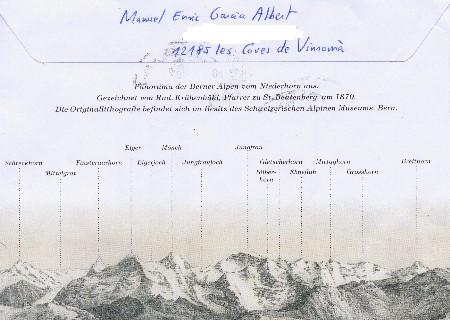 Manuel Enric Garcia Albert
12185 les Coves de Vinromà
Panorama der Berner Alpen vom Niederhorn aus.
Gezeichnet von Rud. Krähenbühl, Pfarrer zu St. Beatenberg um 1870.
Die Originallithografie befindet sich im Besitz des Schweizerischen Alpinen Museums, Bern.
Eiger Mönch Jungfrau
Schreckhorn Finsteraarhorn Eigerjoch Jungfraujoch Gletscherhorn Mittaghorn Breithorn
Mittelgrat Silber- Ebnefluh Grosshorn
horn